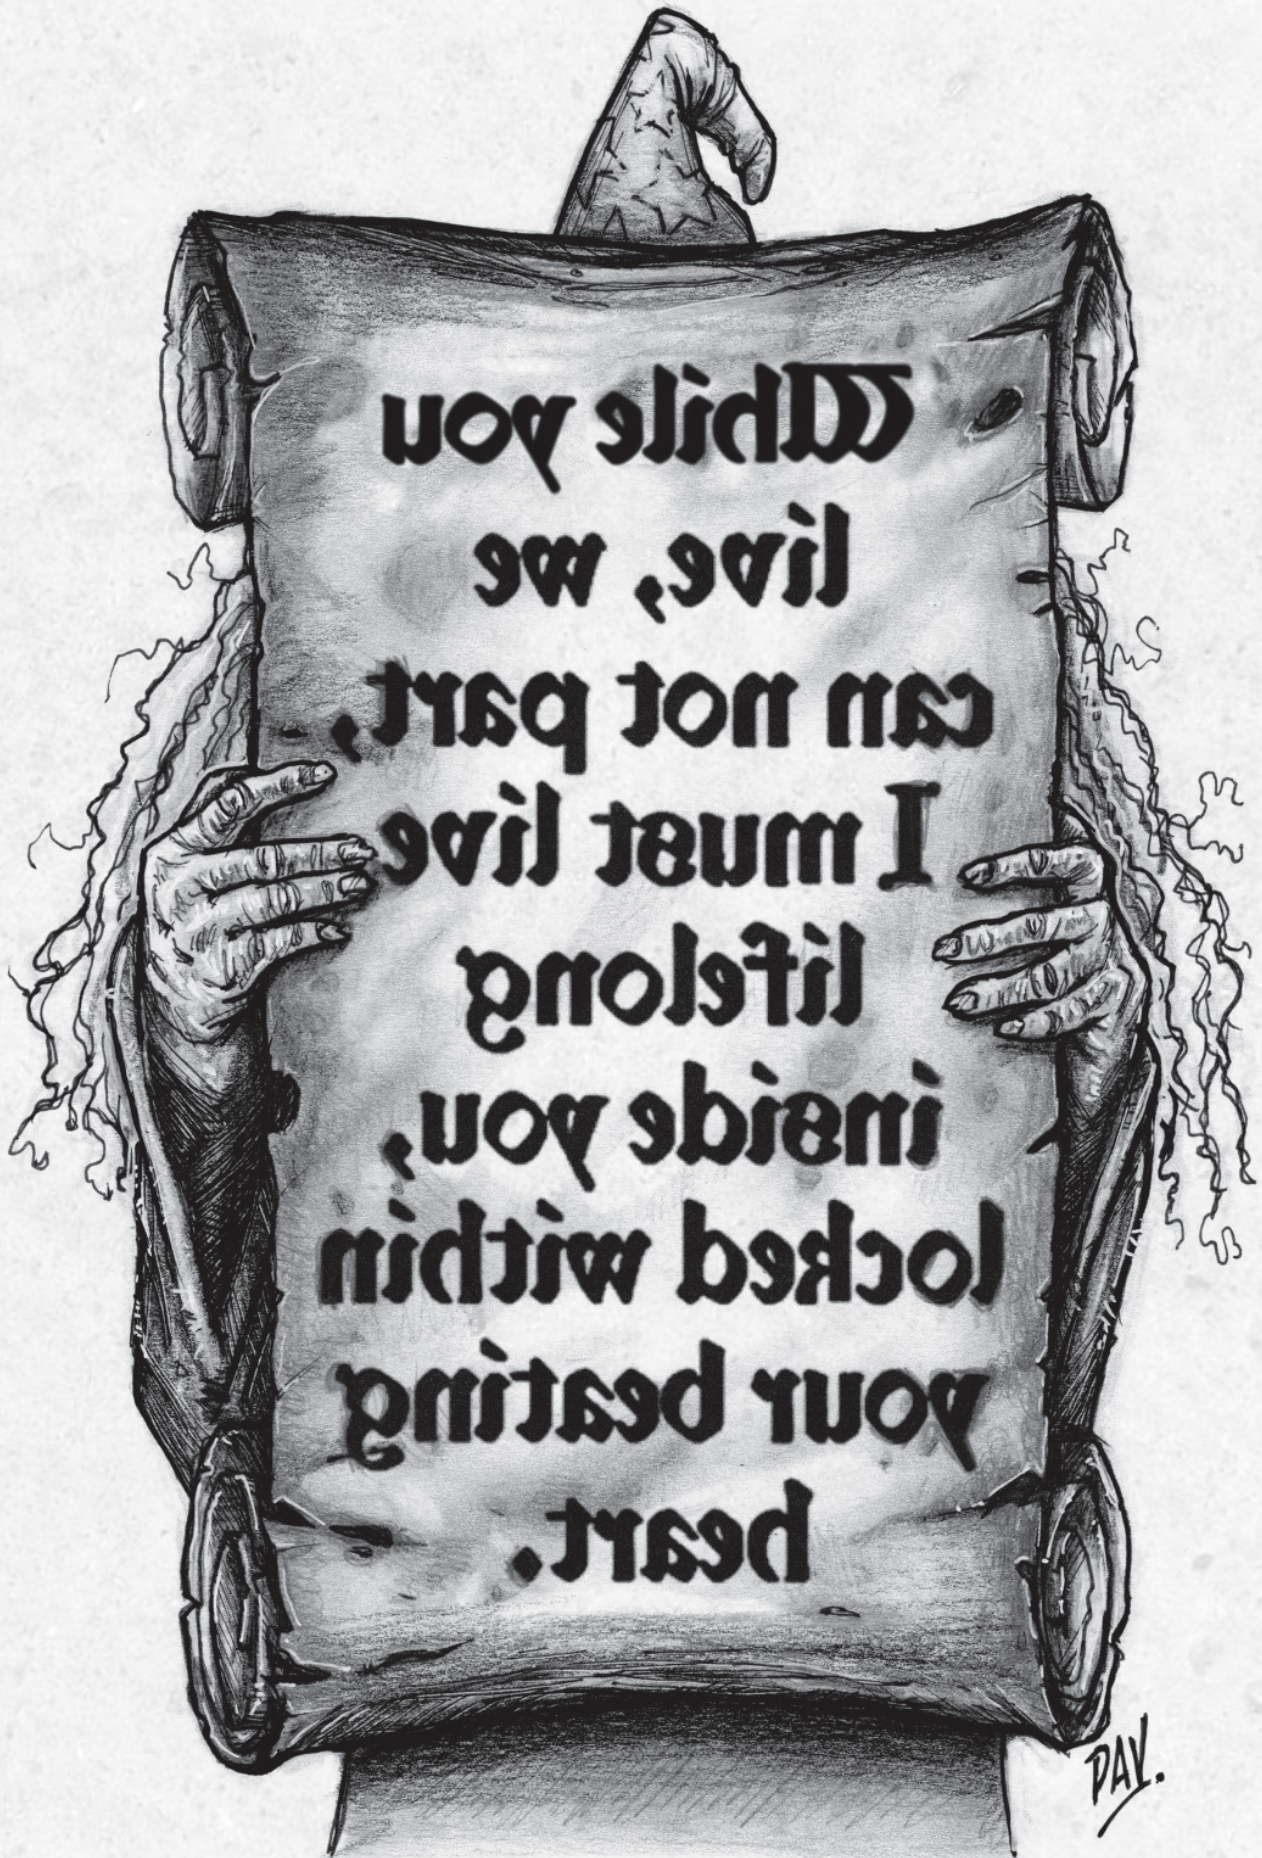 While you
live, we
can not part,
I must live
lifelong
inside you,
locked within
your beating
heart.
DAY.